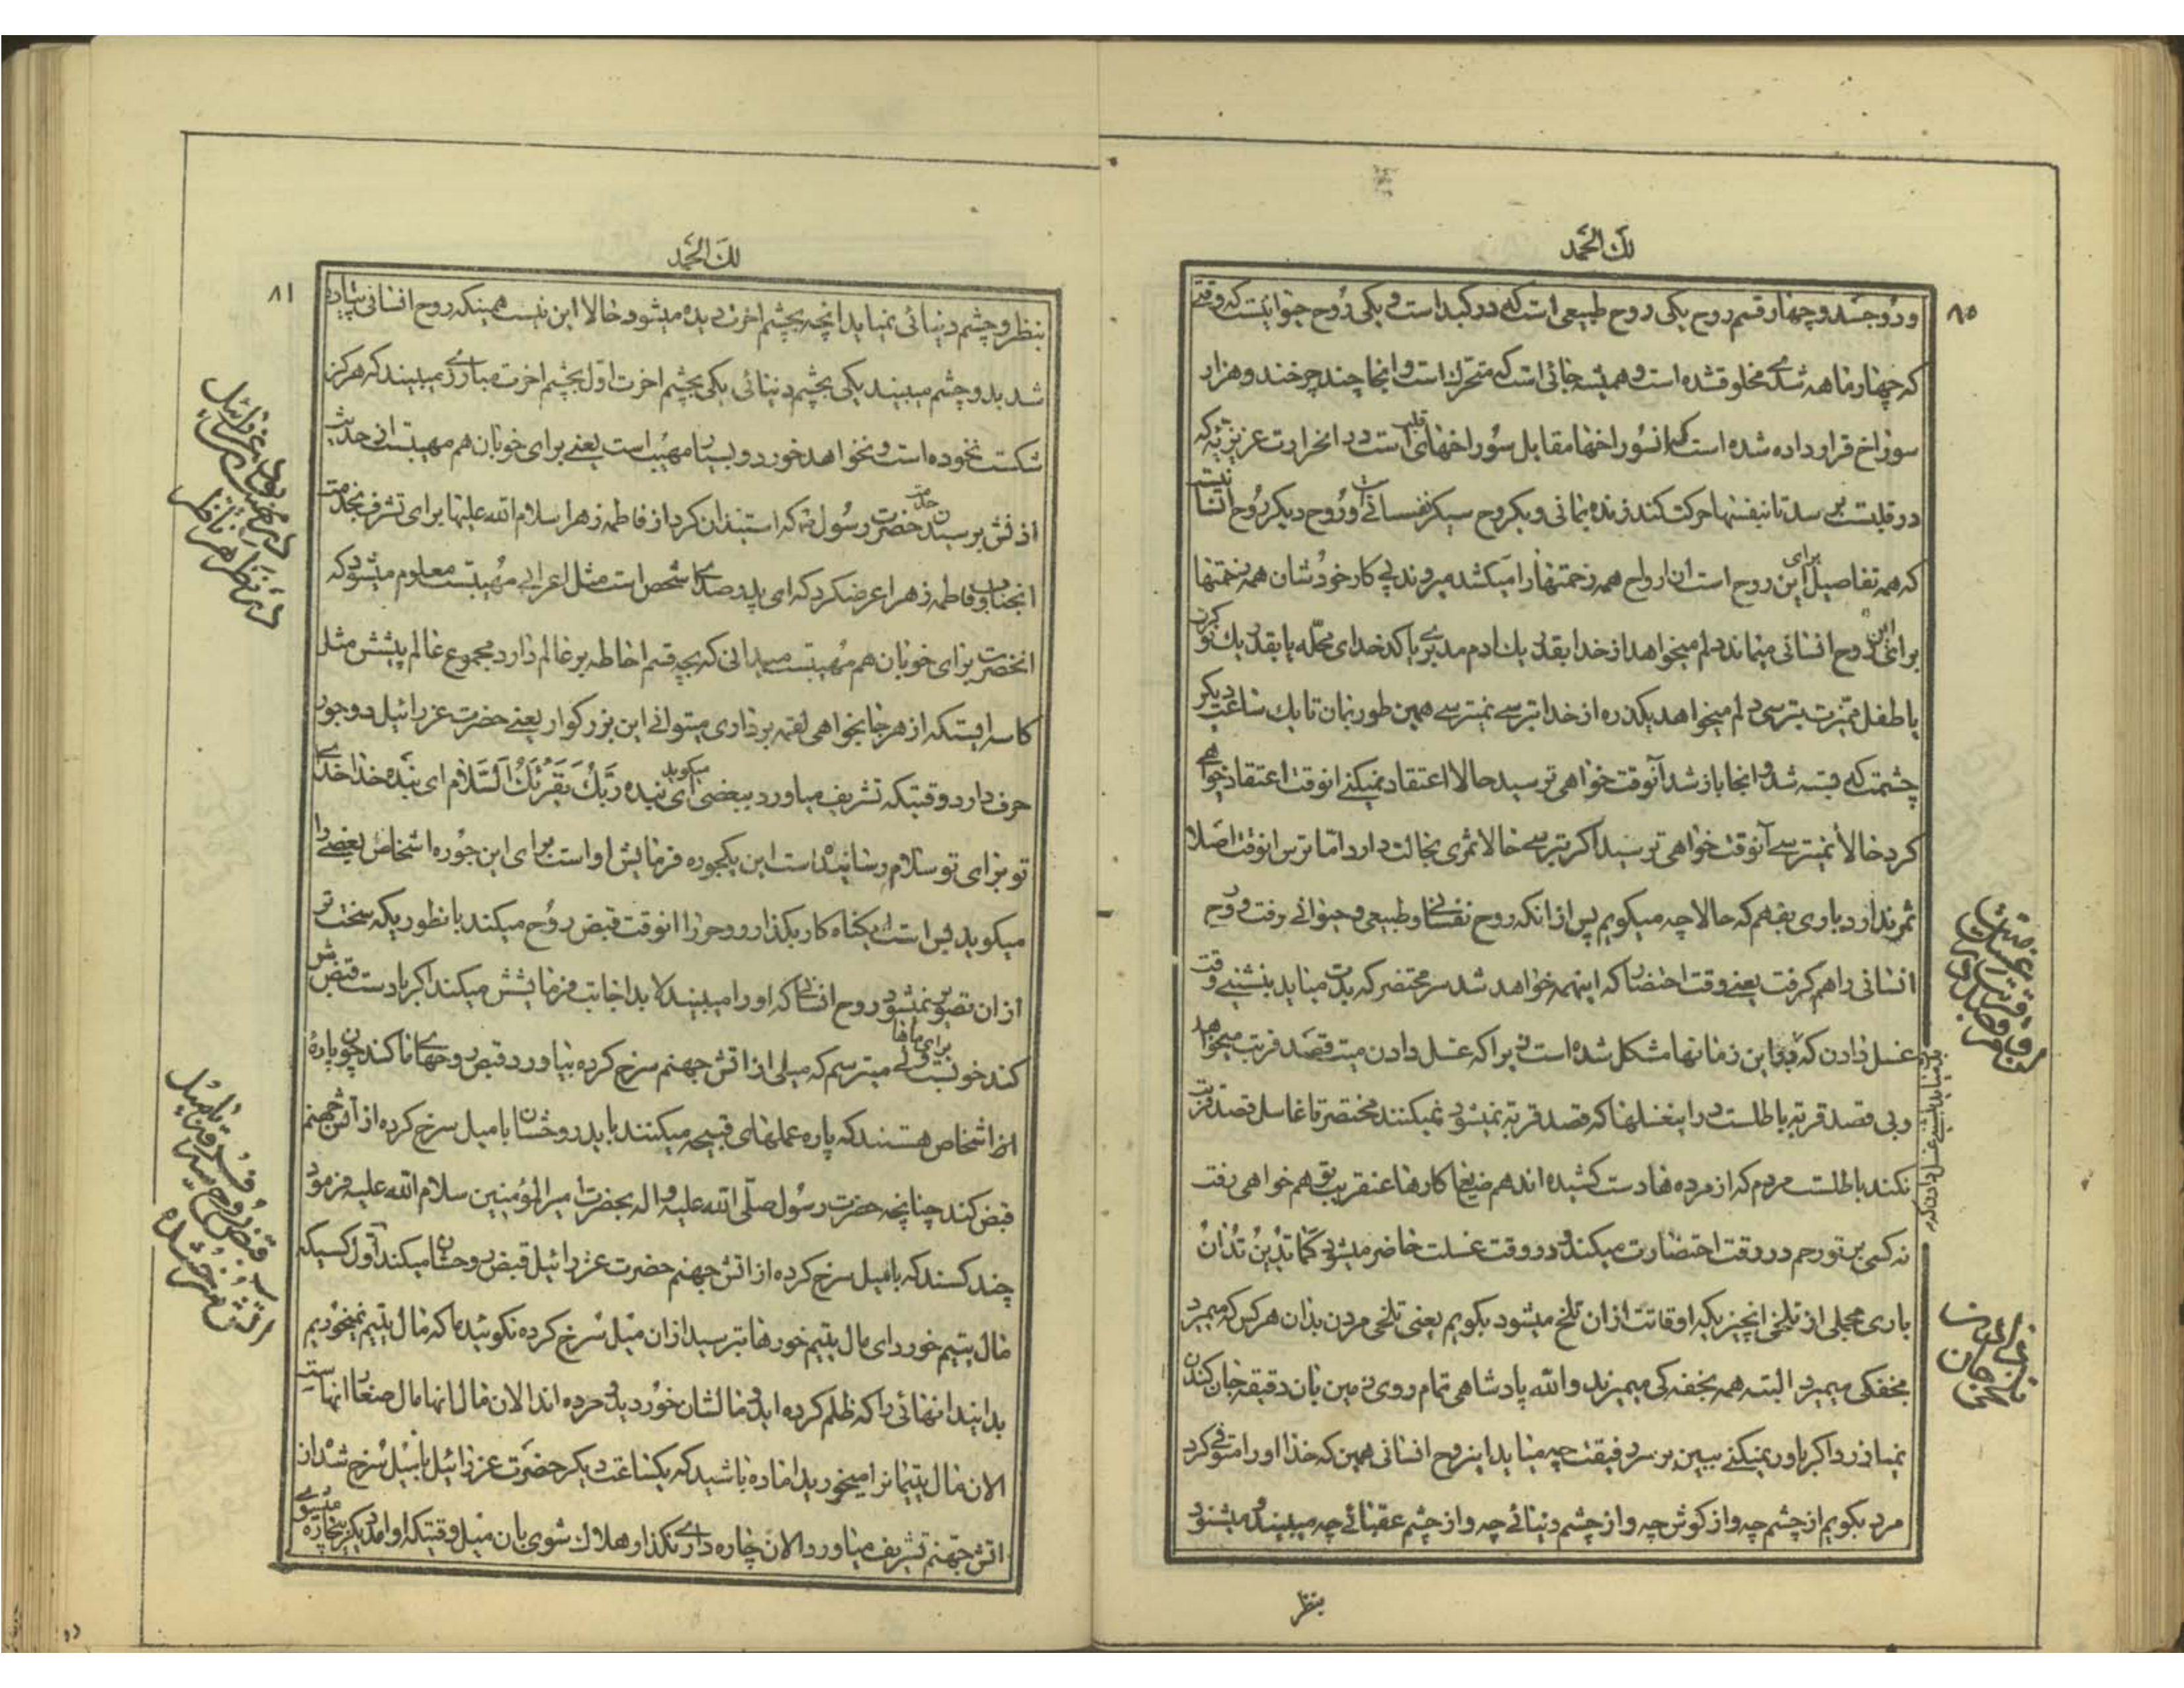 لك الحمد
۸۰
و روح شد و چهار قسم روح یکی روح طبیعی است که در کبد است و یکی روح حیوانیست که وقتی
که چهار ماهه شدی مخلوق شده است و همیشه جائی است که متحرك است و انجا چند چرخند و هزار
سوراخ قرار داده شده است که انسوراخها مقابل سوراخهای قلب است در انحرارت عزیزیه که
در قلبست میرسد تا نیفتنها حرکت کند زنده بمانی و یکروح دیگر نفسانی است و روح دیگر روح انسانیست
که همه تفاصیل برای این روح است ان ارواح همه زحمتها را میکشند میروند پی کار خودشان همه زحمتها
برای این روح انسانی میماند دلم میخواهد از خدا بقدر یك ادم مدبری یا کدخدای محله یا بقدر یك نوکرت
یا طفل ممیزت بترسی دلم میخواهد یکذره از خدا بترسی نمیترسی همین طور بمان تا یك ساعت دیگر
چشمت که بسته شد و انجا باز شد آنوقت خواهی ترسید حالا اعتقاد نمیکنی انوقت اعتقاد خواهی
کرد حالا نمیترسی آنوقت خواهی ترسید اگر بترسی حالا ثمری بحالت دارد اما ترس انوقت اصلا
ثمر ندارد باری بفهم که حالا چه میگویم پس از انکه روح نفسانی و طبیعی و حیوانی رفت و روح
انسانی را هم گرفت یعنی وقت احتضار که اینهمه خواهد شد سر محتضر که بدت میاید بنشینی وقت
غسل دادن که در این زمانها مشکل شده است زیرا که غسل دادن میت قصد قربت میخواهد
و بی قصد قربة باطلست در این غسلها که قصد قربة نمیشود نمیکنند مختصر تا غاسل قصد قربت
نکند باطلست مردم که از مرده ها دست کشیده اند هم ضیغا کارها عنقریب تو هم خواهی رفت
نه کسی بر تو رحم در وقت احتضارت میکند و نه در وقت غسلت حاضر میشود کما تدین تدان
باری مجملی از تلخی انچیزیکه اوقاتت از ان تلخ میشود بگویم یعنی تلخی مردن بدان هر کس که میمیرد
بخفگی میمیرد البته همه بخفگی میمیرند والله پادشاهی تمام روی زمین بان دقیقه جان کندن
نمیارزد اگر باور نمیکنی ببین بر سر رفیقت چه میاید این روح انسانی همین که خدا او را متوفی کرد
مرد بگویم از چشم چه و از گوش چه و از چشم دنیائی چه و از چشم عقبائی چه میبیند و میشنود
بنظر
لك الحمد
۸۱
بنظر و چشم دنیائی نمیاید انچه بچشم اخرت دیده میشود حالا این نیست همینکه روح انسانی بنا
شد بدو چشم میبیند یکی بچشم دنیائی یکی بچشم اخرت اول بچشم اخرت مبارزی میبیند که هرگز
شکست نخورده است و نخواهد خورد و بسیار مهیب است یعنی برای خوبان هم مهیبست این حدیث
انجناب و فاطمه زهرا عرضکرد که ای پدر صدای شخص است مثل اعرابی مهیبست معلوم میشود که
انحضرت برای خوبان هم مهیبست میدانی که بچه قسم احاطه بر عالم دارد مجموع عالم پیشش مثل
کاسه ایستکه از هر جا بخواهی لقمه برداری میتوانی این بزرگوار یعنی حضرت عزرائیل دو جور
حرف دارد وقتیکه تشریف میاورد ببعضی میگوید ای بنده ربك یقرئك السلام ای بنده خدا خدای
تو برای تو سلام رسانیده است این یکجوره فرمایش او است برای این جوره اشخاص بعضی را
میگوید بس است ای گناه کار بگذار و روحرا انوقت قبض روح میکند بانطوریکه سخت تر
از ان تصور نمیشود روح انسانی که او را میبیند لابد اجابت فرمایشش میکند اگر با دست قبضش
کند خوبست ولی برای ماها میترسم که میلی از اتش جهنم سرخ کرده بیاورد قبض روحهای ما کند چون پاره
از اشخاص هستند که پاره عملهای قبیحه میکنند باید روحشان با میل سرخ کرده از آتش جهنم
قبض کند چنانچه حضرت رسول صلّی الله علیه و اله بحضرت امیر المؤمنین سلام الله علیه فرمود
چند کسند که با میل سرخ کرده از اتش جهنم حضرت عزرائیل قبض روحشان میکند اول کسیکه
مال یتیم خورد ای مال یتیم خورها بترسید از ان میل سرخ کرده نگوئید ما که مال یتیم نمیخوریم
بدانید انهائی را که ظلم کرده اید و مالشان خورده اید و مرده اند الان مال انها مال صغار انهاست
الان مال یتیمانرا میخورید اماده باشید که یکساعت دیگر حضرت عزرائیل با میل سرخ شده از
اتش جهنم تشریف میاورد الان چاره داری نگذار هلاك شوی بان میل وقتیکه او امد دیگر بیچاره میشوی